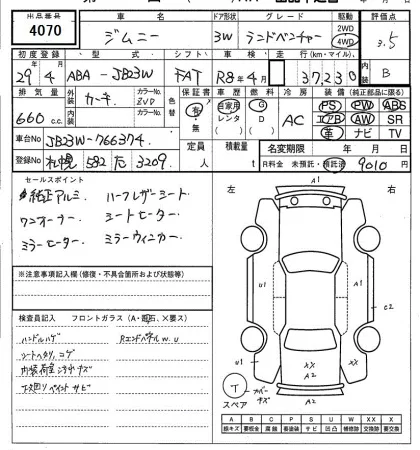 出品番号 4070
車名 ジムニー
ドア形状 3W
グレード ランドベンチャー
駆動 2WD 4WD
評価点 3.5
初度登録 29年4月
型式 ABA-JB23W
シフト FAT
車検 R8年4月
走行(km・マイル) 37,230
内装 B
排気量 660 c.c.
外装 カーキ カラーNo. ZVD
内装 カラーNo.
色替
保証書 有・無
車歴 自家用 レンタ
燃料 G D
冷房 AC
装備(純正部品に限る)
PS PW ABS
エアB AW SR
革 ナビ TV
車台No JB23W-766374
登録No 札幌 582 た 3209
定員 人
積載量 t
名変期限 年 月 日
R料金 未預託・預託済 9010円
セールスポイント
純正アルミ ハーフレザーシート
ワンオーナー シートヒーター
ミラーヒーター ミラーウィンカー
※注意事項記入欄(修復・不具合箇所および状態等)
検査員記入 フロントガラス(A・飛石、×要ス)
ハンドルハゲ RエンドパネルW.U
シートヘタリ、コゲ
内装荷室汚れキズ
下廻りペイント サビ
左 右
A1
U1
C2
U1
XX
XX
A2
A2
T
スペア
カバーキズ
A B C P S U W XX X
線キズ 要板金 腐蝕 要塗装 サビ 凹凸 補修跡 交換跡 要交換